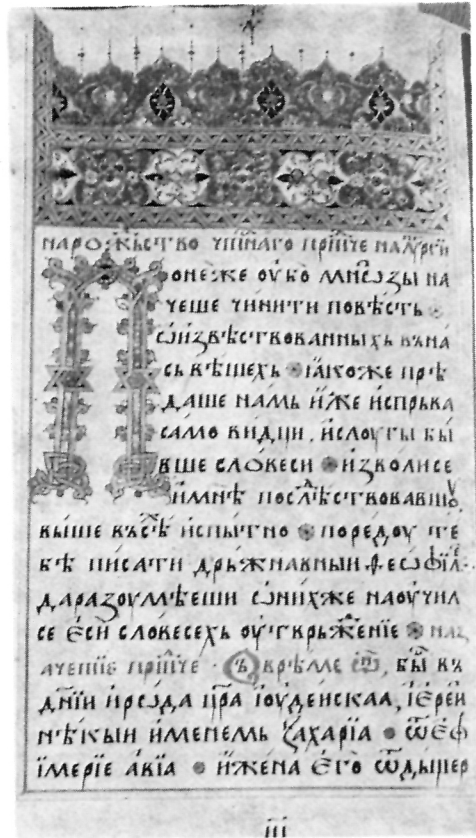 нарожⷣьство чⷭ҇тнаго прⷣтче на лѵⷮргїи
Понеже оубо мнѡѕы на
чеше чинити повѣсть
ѡизвѣствованныхь вьна
сь вѣщехь ꙗкоже прѣ
даше намь иже испрьва
самовидци, ислоугы бы
вше словеси изволисе
имнѣ послѣⷣствовавшоу
выше вьсѣⷯ испытно поредоу те
бѣ писати дрьжнавныи ѳеѡфїле
даразоумѣеши ѡнихже наоучил
се еси словесехь оутврьжⷣенїе наⷱ
зачетие прⷣтче · Въ врѣме ѡⷩ, быⷭ вь
дн҃їи ирѡда цр҃а їоудейскаа, їерей
нѣкыи именемь захарїа ѿ еф
їмерїе авїа ижена его ѿ дьщер
ііі